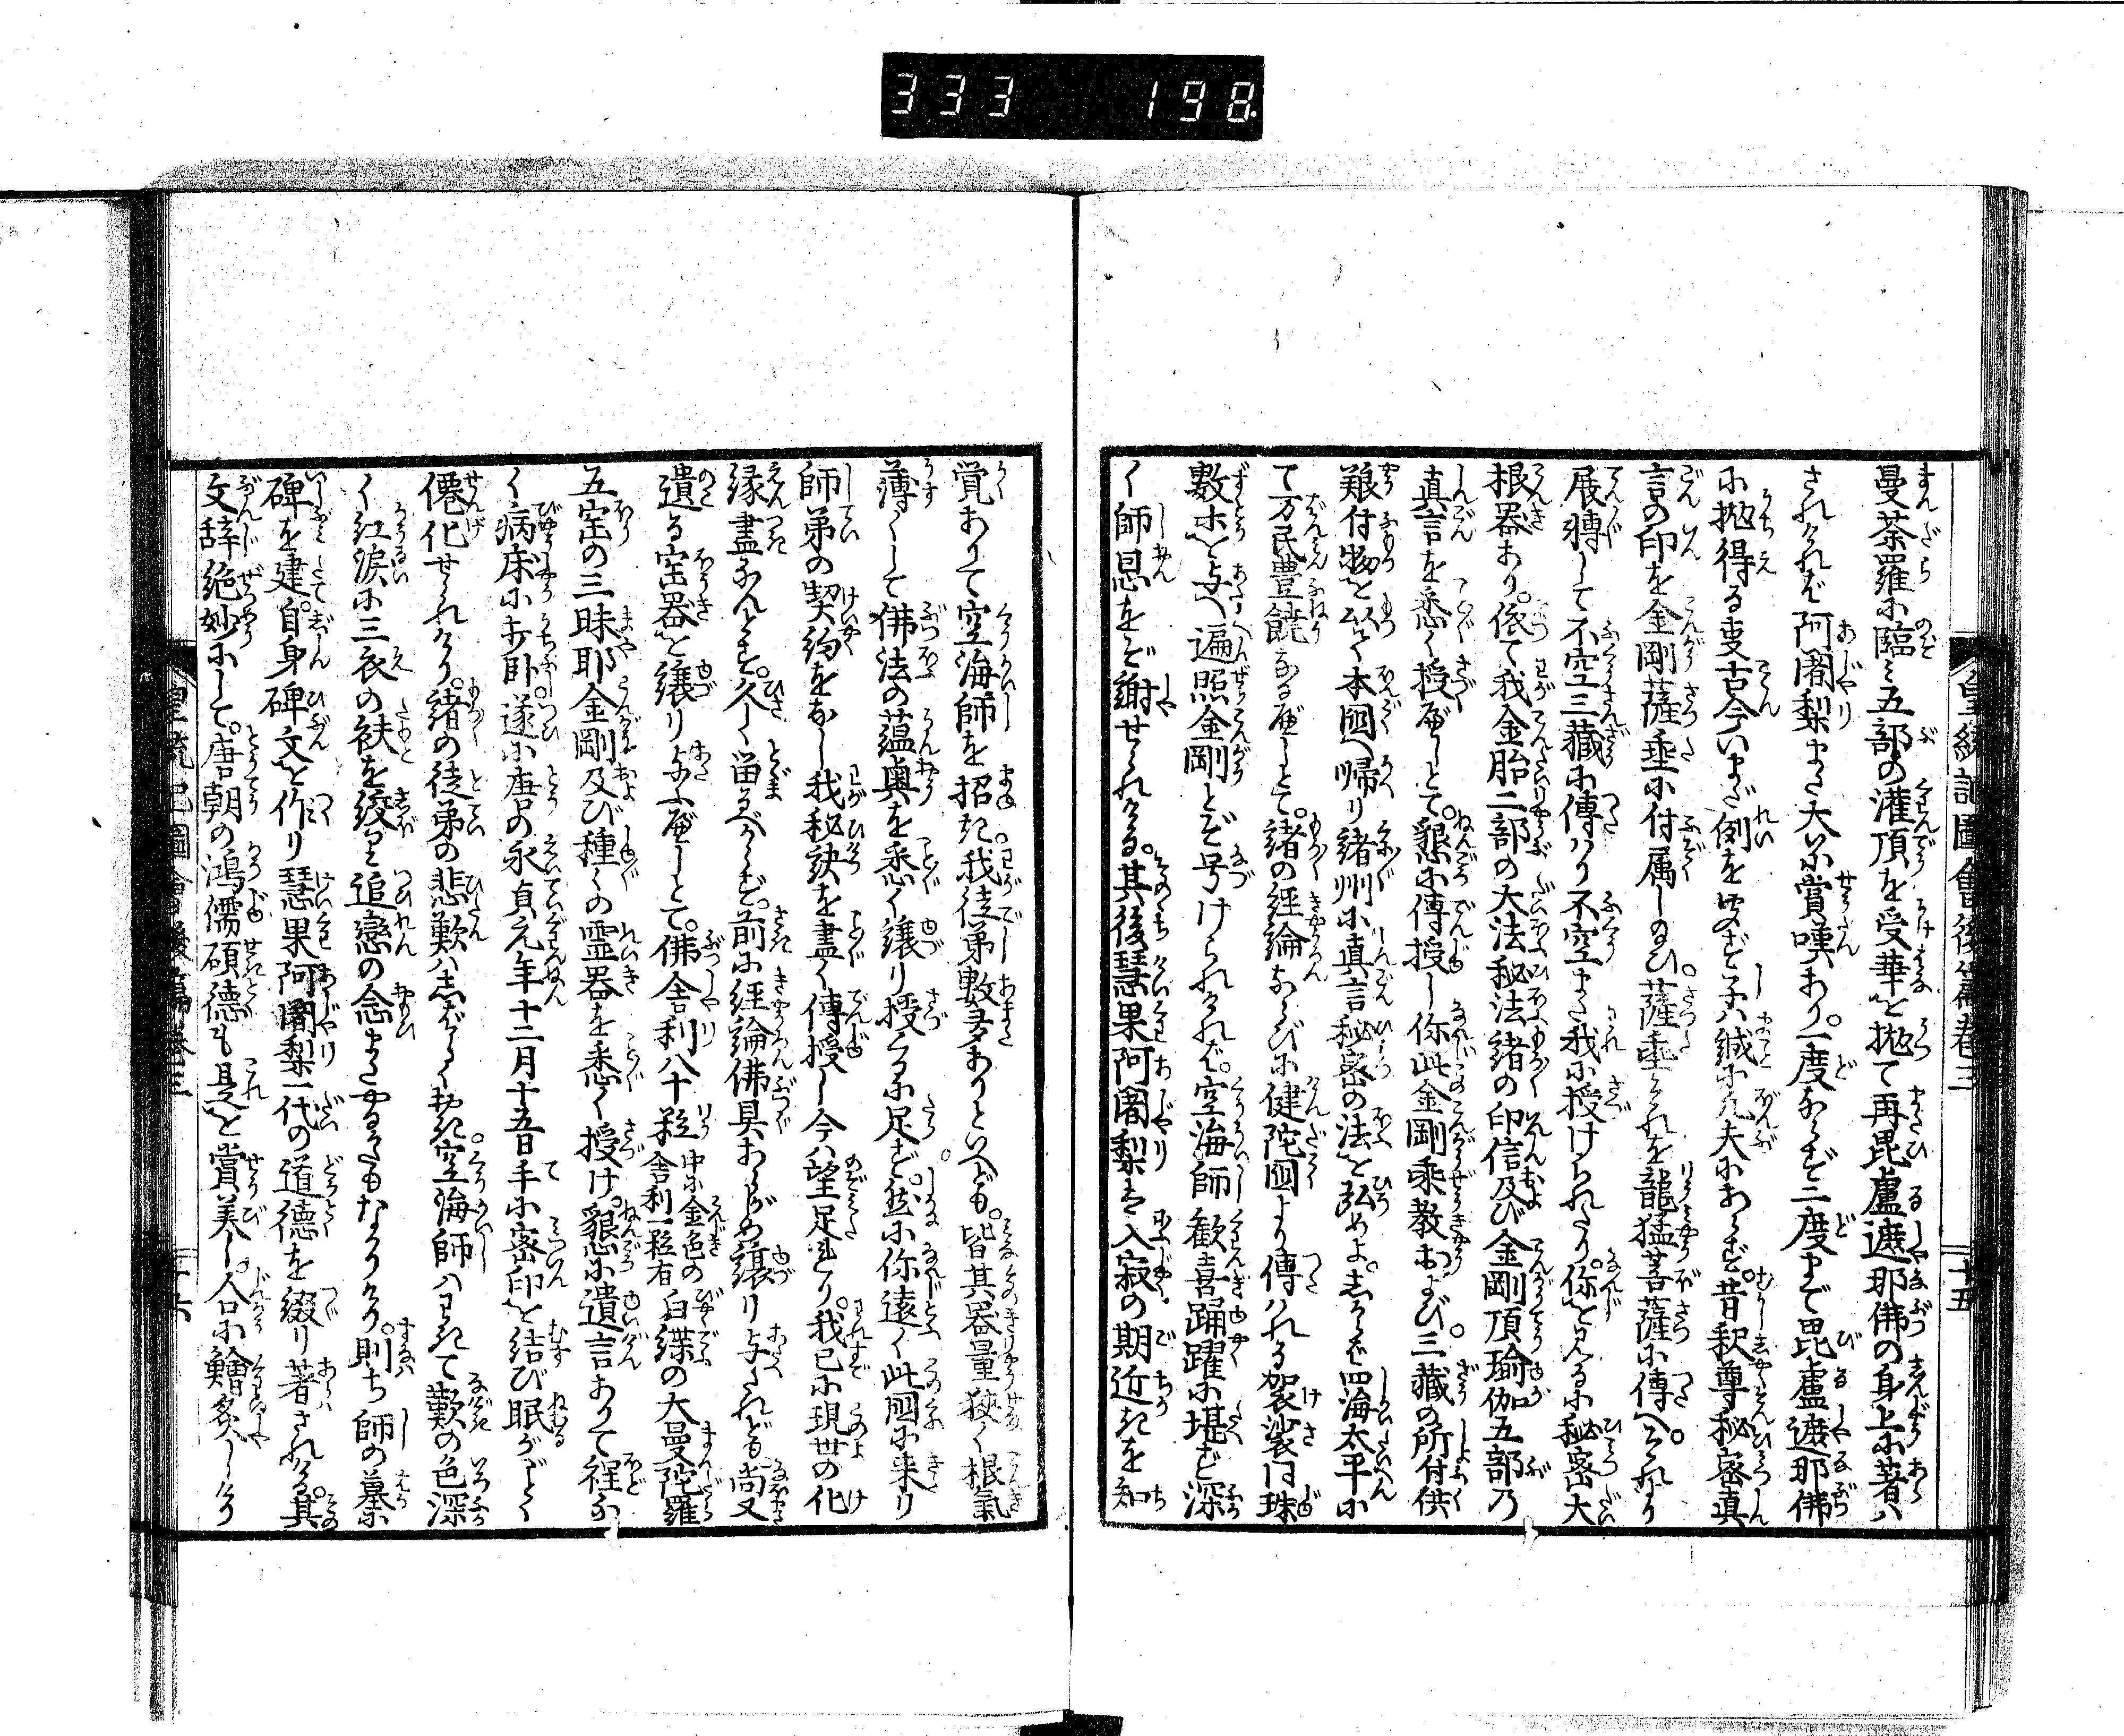 333 198
皇統記圖會後篇巻三
二十五
曼荼羅に臨み五部の灌頂を受華を拋て再毘盧遮那佛の身上に著ハ
されけれバ阿闍梨また大に賞嘆あり一度ならず二度まで毘盧遮那佛
に拋得る叓古今いまだ例を聞ず子ハ誠に凡夫にあらず。昔釈尊秘密真
言の印を金剛薩埵に付属し給ひ。薩埵これを龍猛菩薩に傳へ。それより
展轉して不空三藏に傳ハり不空また我に授けられたり。你を見るに秘密大
根器あり。依て我金胎二部の大法秘法諸の印信及び金剛頂瑜伽五部乃
真言を悉く授べしとて。懇に傳授し你此金剛乘教および。三藏の所付供
難付物を以て本國へ帰り諸州に真言秘密の法を弘めよ。しからバ四海太平に
て万民豊饒なるべしとて。諸の経論ならびに健陀國より傳ハれる袈裟同珠
數ホを与へ遍照金剛とぞ号けられけれバ。空海師歓喜踊躍に堪ず深
く師恩をぞ謝せられける。其後慧果阿闍梨は入寂の期近きを知
覚ありて空海師を招き。我徒弟數多ありといへども。皆其器量狹く根氣
薄くして佛法の蘊奥を悉く譲り授くるに足ず。然に你遠く此國に来り
師弟の契約をなし我秘訣を盡く傳授し今ハ望足れり。我已に現世の化
縁盡なんとす。久しく留るべからず。前に経論佛具おらおら譲り与たれども。尚又
遺る宝器を譲り与ふべしとて。佛舎利八十粒中に金色の舎利一粒有白緤の大曼陀羅
五宝の三昧耶金剛及び種々の霊器を悉く授け。懇に遺言ありて程な
く病床に打臥。遂に唐の永貞元年十二月十五日手に密印を結び眠がごとく
僊化せられけり。諸の徒弟の悲歎ハ志ばらく措き。空海師ハわきて歎の色深
く紅涙に三衣の袂を絞り追戀の念またやるかたもなかりけり。則ち師の墓に
碑を建。自身碑文を作り慧果阿闍梨一代の道德を綴り著されける。其
文辞絶妙にして。唐朝の鴻儒碩德も是を賞美し。人口に鱠炙しけり
皇統記圖會後篇巻三